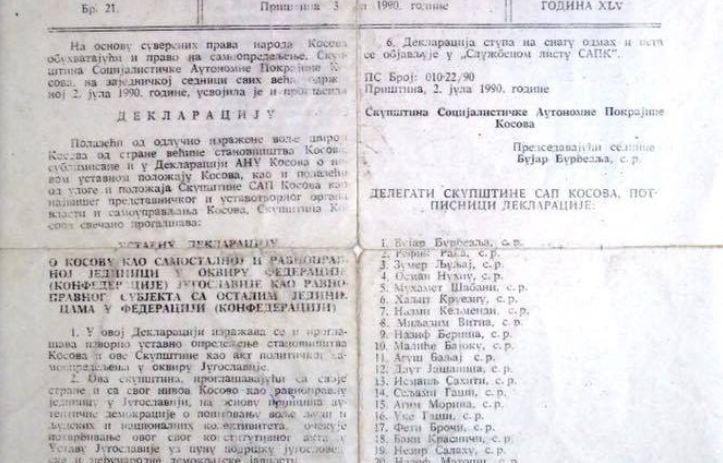 Бр. 21.
Приштина 3 1990. године
ГОДИНА XLV
На основу суверених права народа Косова
обухватајући и право на самоопредељење, Скуп-
штина Социјалистичке Аутономне Покрајине Ко-
сова, на заједничкој седници свих већа, одржа-
ној 2. јула 1990. године, усвојила је и прогласила
ДЕКЛАРАЦИЈУ
Полазећи од одлучно изражене воље широм
Косова од стране већине становништва Косова,
сублимисане и у Декларацији АНУ Косова о но-
вом уставном положају Косова, као и полазећи
од улоге и положаја Скупштине САП Косова као
највишег представничког и уставотворног органа
власти и самоуправљања Косова, Скупштина Ко-
сова свечано проглашава:
УСТАВНУ ДЕКЛАРАЦИЈУ
О КОСОВУ КАО САМОСТАЛНОЈ И РАВНОПРАВ-
НОЈ ЈЕДИНИЦИ У ОКВИРУ ФЕДЕРАЦИЈЕ
(КОНФЕДЕРАЦИЈЕ) ЈУГОСЛАВИЈЕ КАО РАВНО-
ПРАВНОГ СУБЈЕКТА СА ОСТАЛИМ ЈЕДИНИ-
ЦАМА У ФЕДЕРАЦИЈИ (КОНФЕДЕРАЦИЈИ)
1. У овој Декларацији изражава се и прогла-
шава изворно уставно опредељење становништва
Косова и ове Скупштине као акт политичког са-
моопредељења у оквиру Југославије.
2. Ова скупштина, проглашавајући са своје
стране и са свог нивоа Косово као равноправну
јединицу у Југославији, на основу принципа ау-
тентичне демократије о поштовању воље људи и
људских и националних колективитета, очекује
потврђивање овог свог конститутивног акта у
Уставу Југославије уз пуну подршку југословен-
ске и међународне демократске јавности.
6. Декларација ступа на снагу одмах и иста
се објављује у „Службеном листу САПК“.
ПС Број: 010-22/90
Приштина, 2. јула 1990. године
Скупштина Социјалистичке Аутономне Покрајине
Косова
Председавајући седнице
Бујар Бурбеља, с. р.
ДЕЛЕГАТИ СКУПШТИНЕ САП КОСОВА, ПОТ-
ПИСНИЦИ ДЕКЛАРАЦИЈЕ:
1. Бујар Бурбеља, с. р.
2. Рефик Рака, с. р.
3. Зумер Љуљај, с. р.
4. Осман Нухиу, с. р.
5. Мухамет Шабани, с. р.
6. Халит Круезиу, с. р.
7. Назми Кељменди, с. р.
8. Миљазим Витиа, с. р.
9. Назиф Бериша, с. р.
10. Маличе Бајоку, с. р.
11. Агуш Баљај с. р.
12. Даут Јашаница, с. р.
13. Исмаиљ Сахити, с. р.
14. Сељами Гаши, с. р.
15. Агим Морина, с. р.
16. Уке Гаши, с. р.
17. Фети Брочи, с. р.
18. Баки Красничи, с. р.
19. Незир Салаху, с. р.
20. с. р.